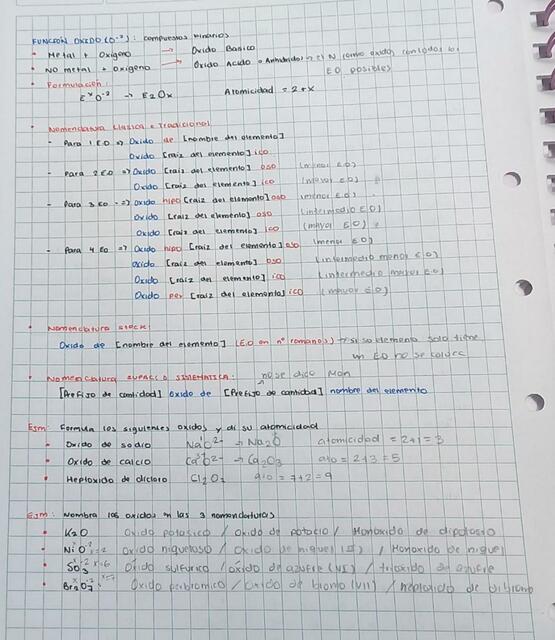 FUNCIÓN OXIDO (O⁻²): compuestos binarios
• Metal + Oxigeno → Oxido Basico
• NO metal + Oxigeno → Oxido Acido o Anhidrido → el N (como oxido) con todos los EO posibles)
• Formulación:
EˣO⁻² → E₂Oₓ Atomicidad = 2+x
• Nomenclatura Clasica o Tradicional
- Para 1 EO => Oxido de [nombre del elemento]
Oxido [raiz del elemento] ico
- Para 2 EO => Oxido [raiz del elemento] oso (menor E.O)
Oxido [raiz del elemento] ico (mayor E.O)
- Para 3 EO => Oxido hipo [raiz del elemento] oso (menor E.O)
Oxido [raiz del elemento] oso (intermedio E.O)
Oxido [raiz del elemento] ico (mayor E.O)
- Para 4 EO => Oxido hipo [raiz del elemento] oso (menor E.O)
Oxido [raiz del elemento] oso (intermedio menor E.O)
Oxido [raiz del elemento] ico (intermedio mayor E.O)
Oxido per [raiz del elemento] ico (mayor E.O)
• Nomenclatura STOCK:
Oxido de [nombre del elemento] (E.O en nº romanos) → si su elemento solo tiene
un EO no se coloca
• Nomenclatura IUPAC o SISTEMATICA: no se dice Mon
[Prefijo de cantidad] oxido de [Prefijo de cantidad] nombre del elemento
Ejm: Formula los siguientes oxidos y di su atomicidad
• Oxido de sodio Na¹O²⁻ → Na₂O atomicidad = 2+1=3
• Oxido de calcio Ca³O²⁻ → Ca₂O₃ ato = 2+3=5
• Heptoxido de dicloro Cl₂O₇ ato = 7+2=9
Ejm: Nombra los oxidos en las 3 nomenclaturas
• K₂O Oxido potasico / Oxido de potacio / Monoxido de dipotasio
• NiO x=2 Oxido niqueloso / Oxido de niquel (II) / Monoxido de niquel
• SO₃ x=6 Oxido sulfurico / oxido de azufre (VI) / trioxido de azufre
• Br₂O₇ x=7 Oxido perbromico / Oxido de bromo (VII) / heptoxido de dibromo